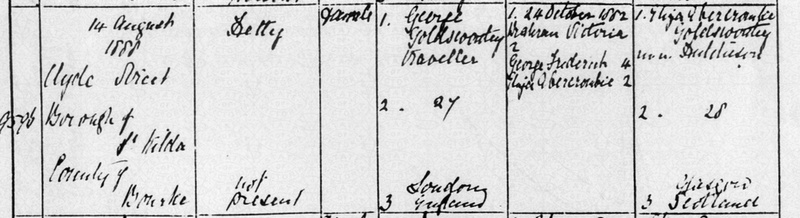 9596
14 August
1888
Clyde Street
Borough of
St Kilda
County of
Bourke
Hetty
not
present
Female
1. George
Goldsworthy
Traveller
2. 27
3 London
England
1. 24 October 1882
Prahran Victoria
2
George Frederick 4
Eliza Abercrombie 2
1. Eliza Abercrombie
Goldsworthy
m.n. Hutchison
2. 28
3 Glasgow
Scotland